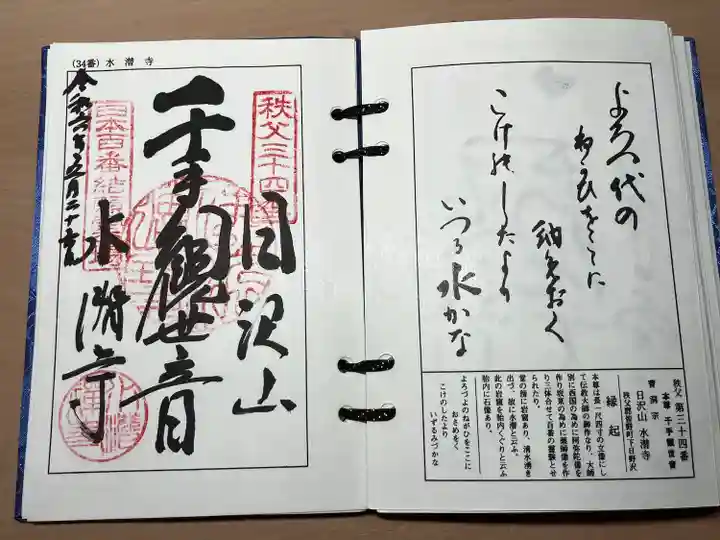 (34番) 水潜寺
秩父三十四番
日沢山
千手観世音
日本百番結願
水潜寺
よろづ代の
ねがひをここに
納めおく
こけのしたより
いづる水かな
秩父 第三十四番
本尊 千手觀世音
曹洞宗
日沢山 水潜寺
秩父郡皆野町下日野沢
縁起
本尊は長一尺四寸の立像にし
て伝教大師の御作なり、大師
別に西国の為めに阿弥陀像を
作り坂東の為めに薬師像を作
り三体合せて百番の霊験とせ
られたり。
堂の傍に岩窟あり、清水湧き
出づ、故に水潜と云ふ。
此の岩窟を胎内くぐりと云ふ
胎内に石像あり。
よろづよのねがひをここに
おさめをく
こけのしたより
いずるみづかな